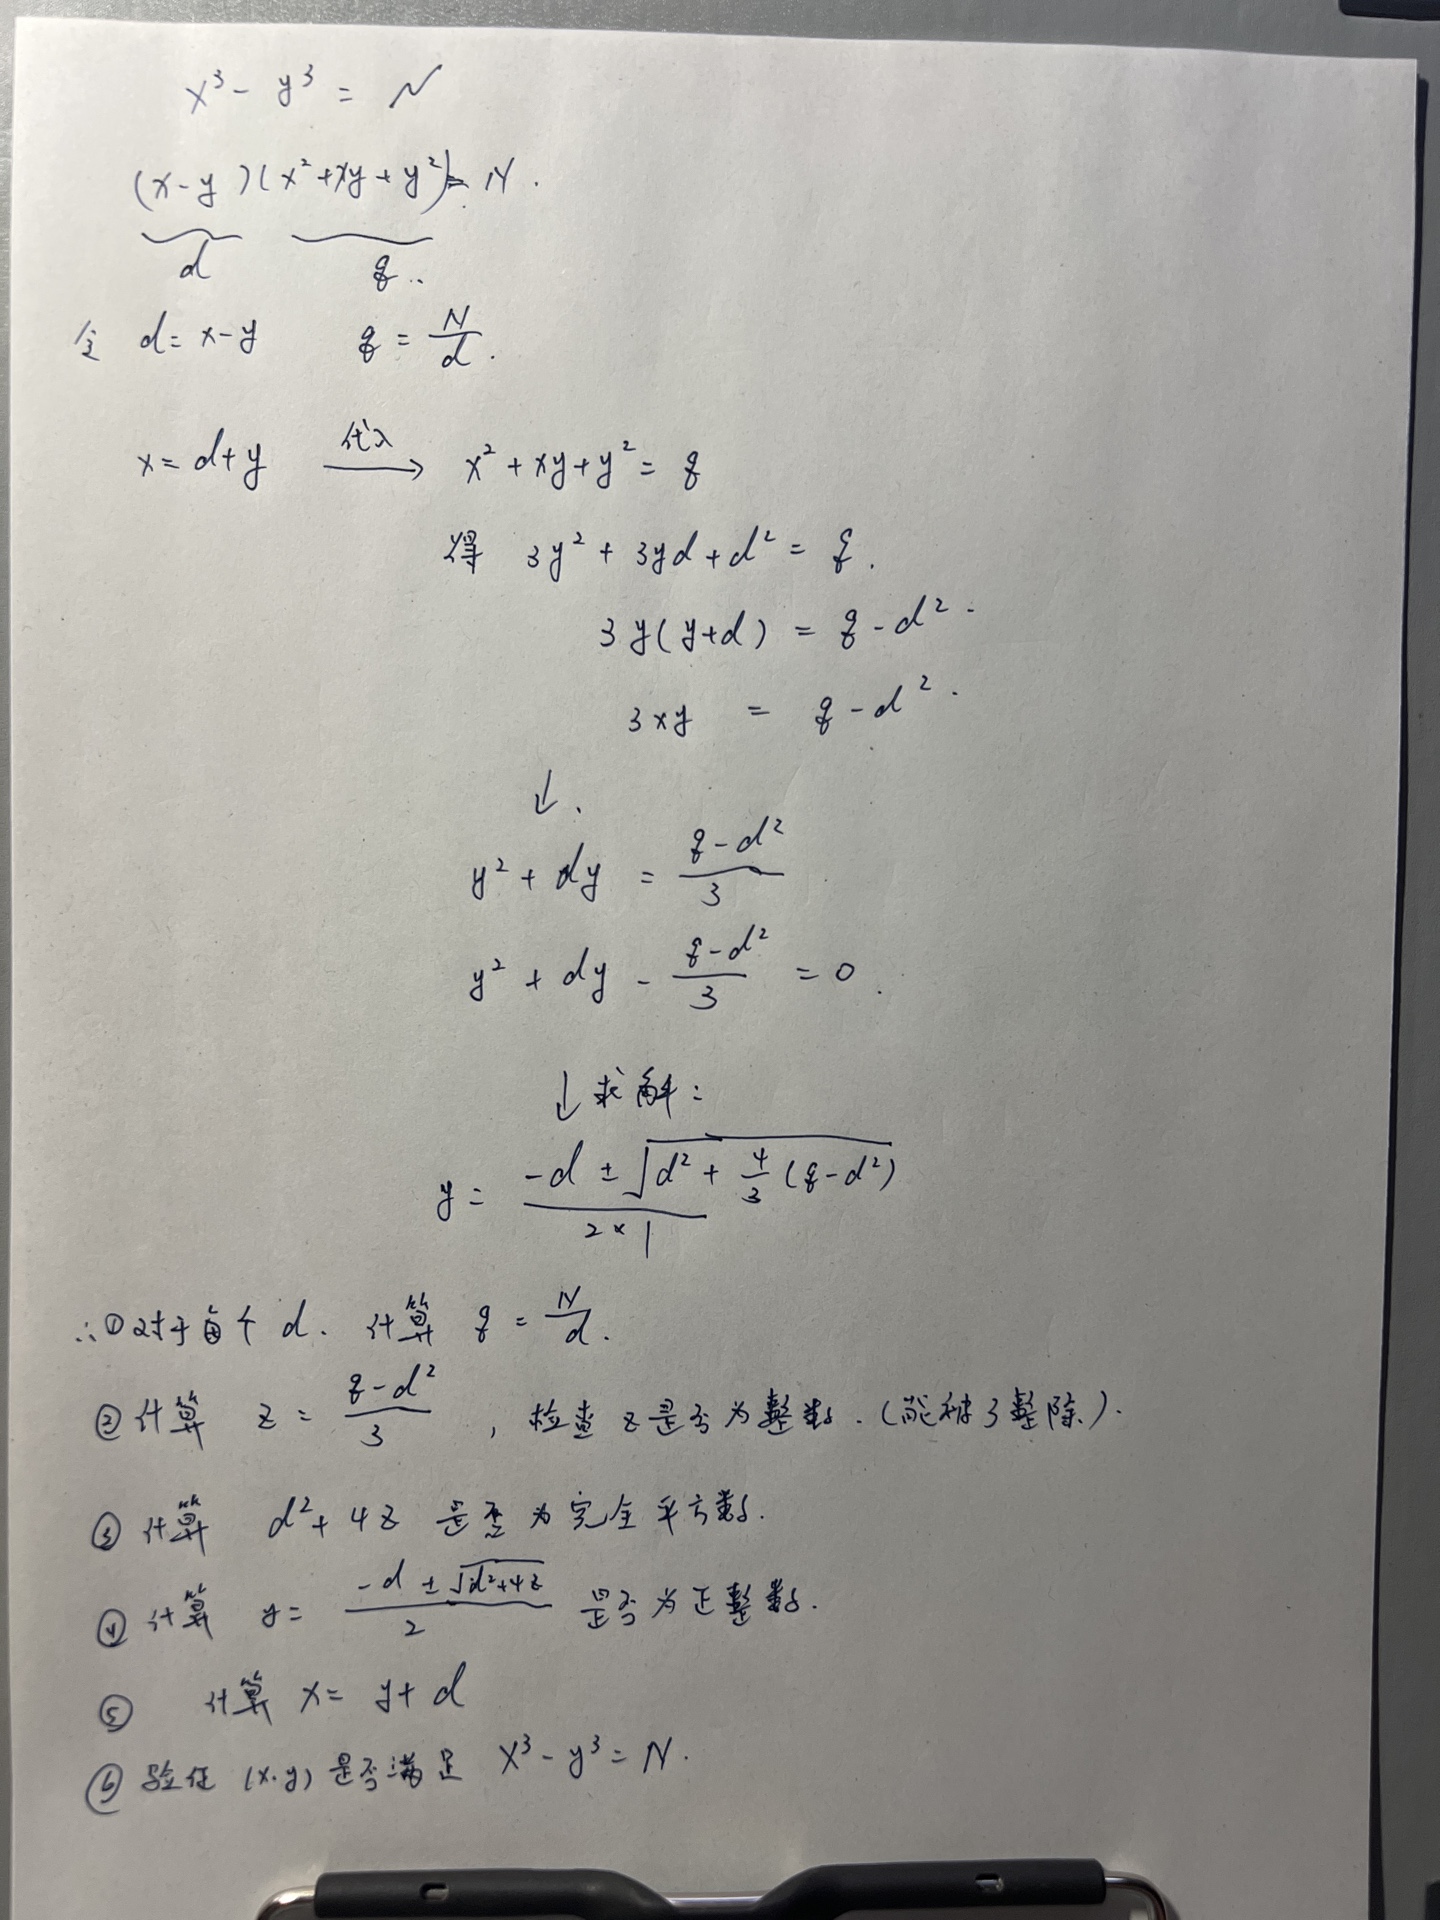 x³ - y³ = N
(x-y)(x²+xy+y²) = N.
d q..
令 d = x-y q = N/d.
x = d+y 代入→ x²+xy+y² = q
得 3y² + 3yd + d² = q.
3y(y+d) = q - d².
3xy = q - d².
↓.
y² + dy = (q-d²)/3
y² + dy - (q-d²)/3 = 0.
↓求解:
y = (-d ± √(d² + 4/3 (q-d²)))/(2×1)
∴①对于每个 d. 计算 q = N/d.
②计算 z = (q-d²)/3 , 检查 z是否为整数.(能被3整除).
③ 计算 d²+4z 是否为完全平方数.
④ 计算 y = (-d ± √(d²+4z))/2 是否为正整数.
⑤ 计算 x = y+d
⑥ 验证 (x.y) 是否满足 x³ - y³ = N.